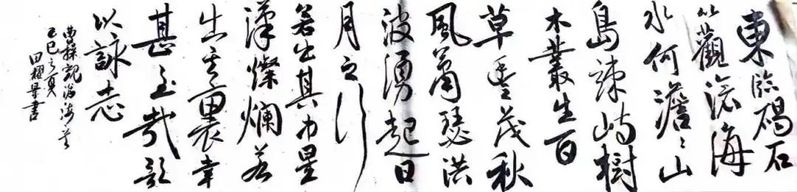 東臨碣石
以觀滄海
水何澹々山
島竦峙樹
木叢生百
草豐茂秋
風蕭瑟洪
波湧起日
月之行
若出其中星
漢燦爛若
出其裏幸
甚至哉歌
以詠志
曹操觀滄海
田耀
書